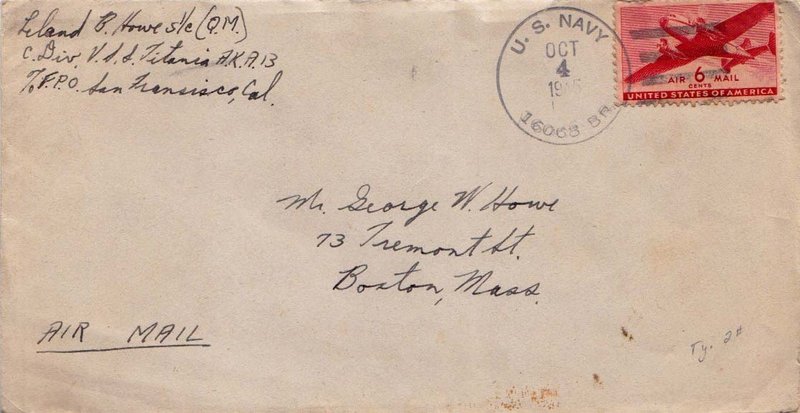 Leland B. Howe s/c (Q.M.)
C. Div. U.S.S. Titania A.K.A. 13
% F.P.O. San Fransisco, Cal.
U. S. NAVY
OCT
4
16068 BR.
AIR 6 MAIL
CENTS
UNITED STATES OF AMERICA
Mr. George W. Howe
73 Tremont St.
Boston, Mass.
AIR MAIL
Ty. 2